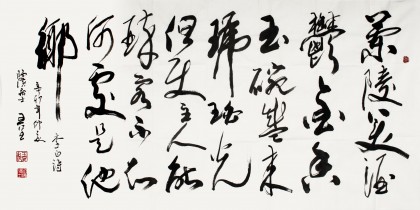 蘭陵美酒
鬱金香
玉碗盛来
琥珀光
但使主人能
醉客不知
何處是他
鄉
李白诗
辛卯年仲夏